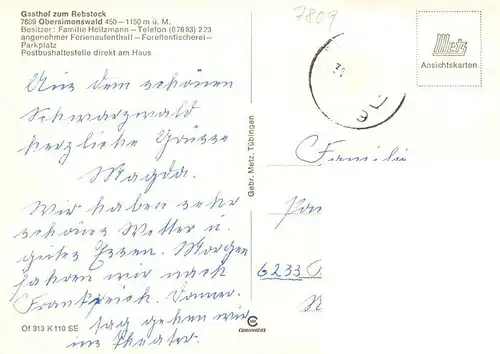 Gasthof zum Rebstock
7809 Obersimonswald 450—1150 m ü. M.
Besitzer: Familie Heitzmann — Telefon (07683) 223
angenehmer Ferienaufenthalt — Forellenfischerei —
Parkplatz
Postbushaltestelle direkt am Haus
7809
Metz
Ansichtskarten
Aus dem schönen
Schwarzwald
herzliche Grüsse
Magda.
Wir haben sehr
schönes Wetter u.
gutes Essen. Morgen
fahren wir nach
Frankreich. Donner-
stag gehen wir
ins Theater.
Gebr. Metz, Tübingen
Familie
6233
Of 313 K 110 SE
CHROMOLUX